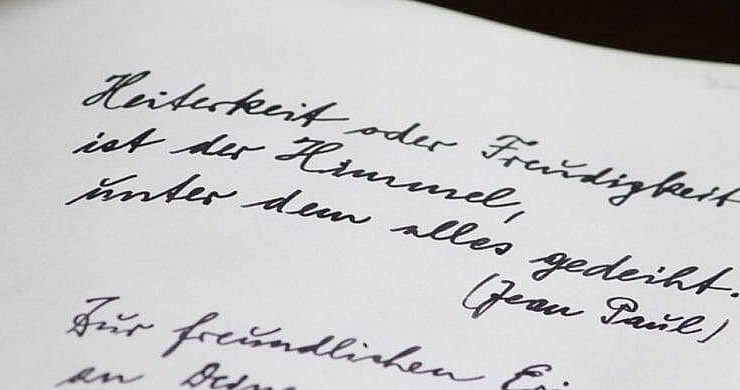 Heiterkeit oder Freudigkeit
ist der Himmel,
unter dem alles gedeiht.
(Jean Paul)
Zur freundlichen
an Deine